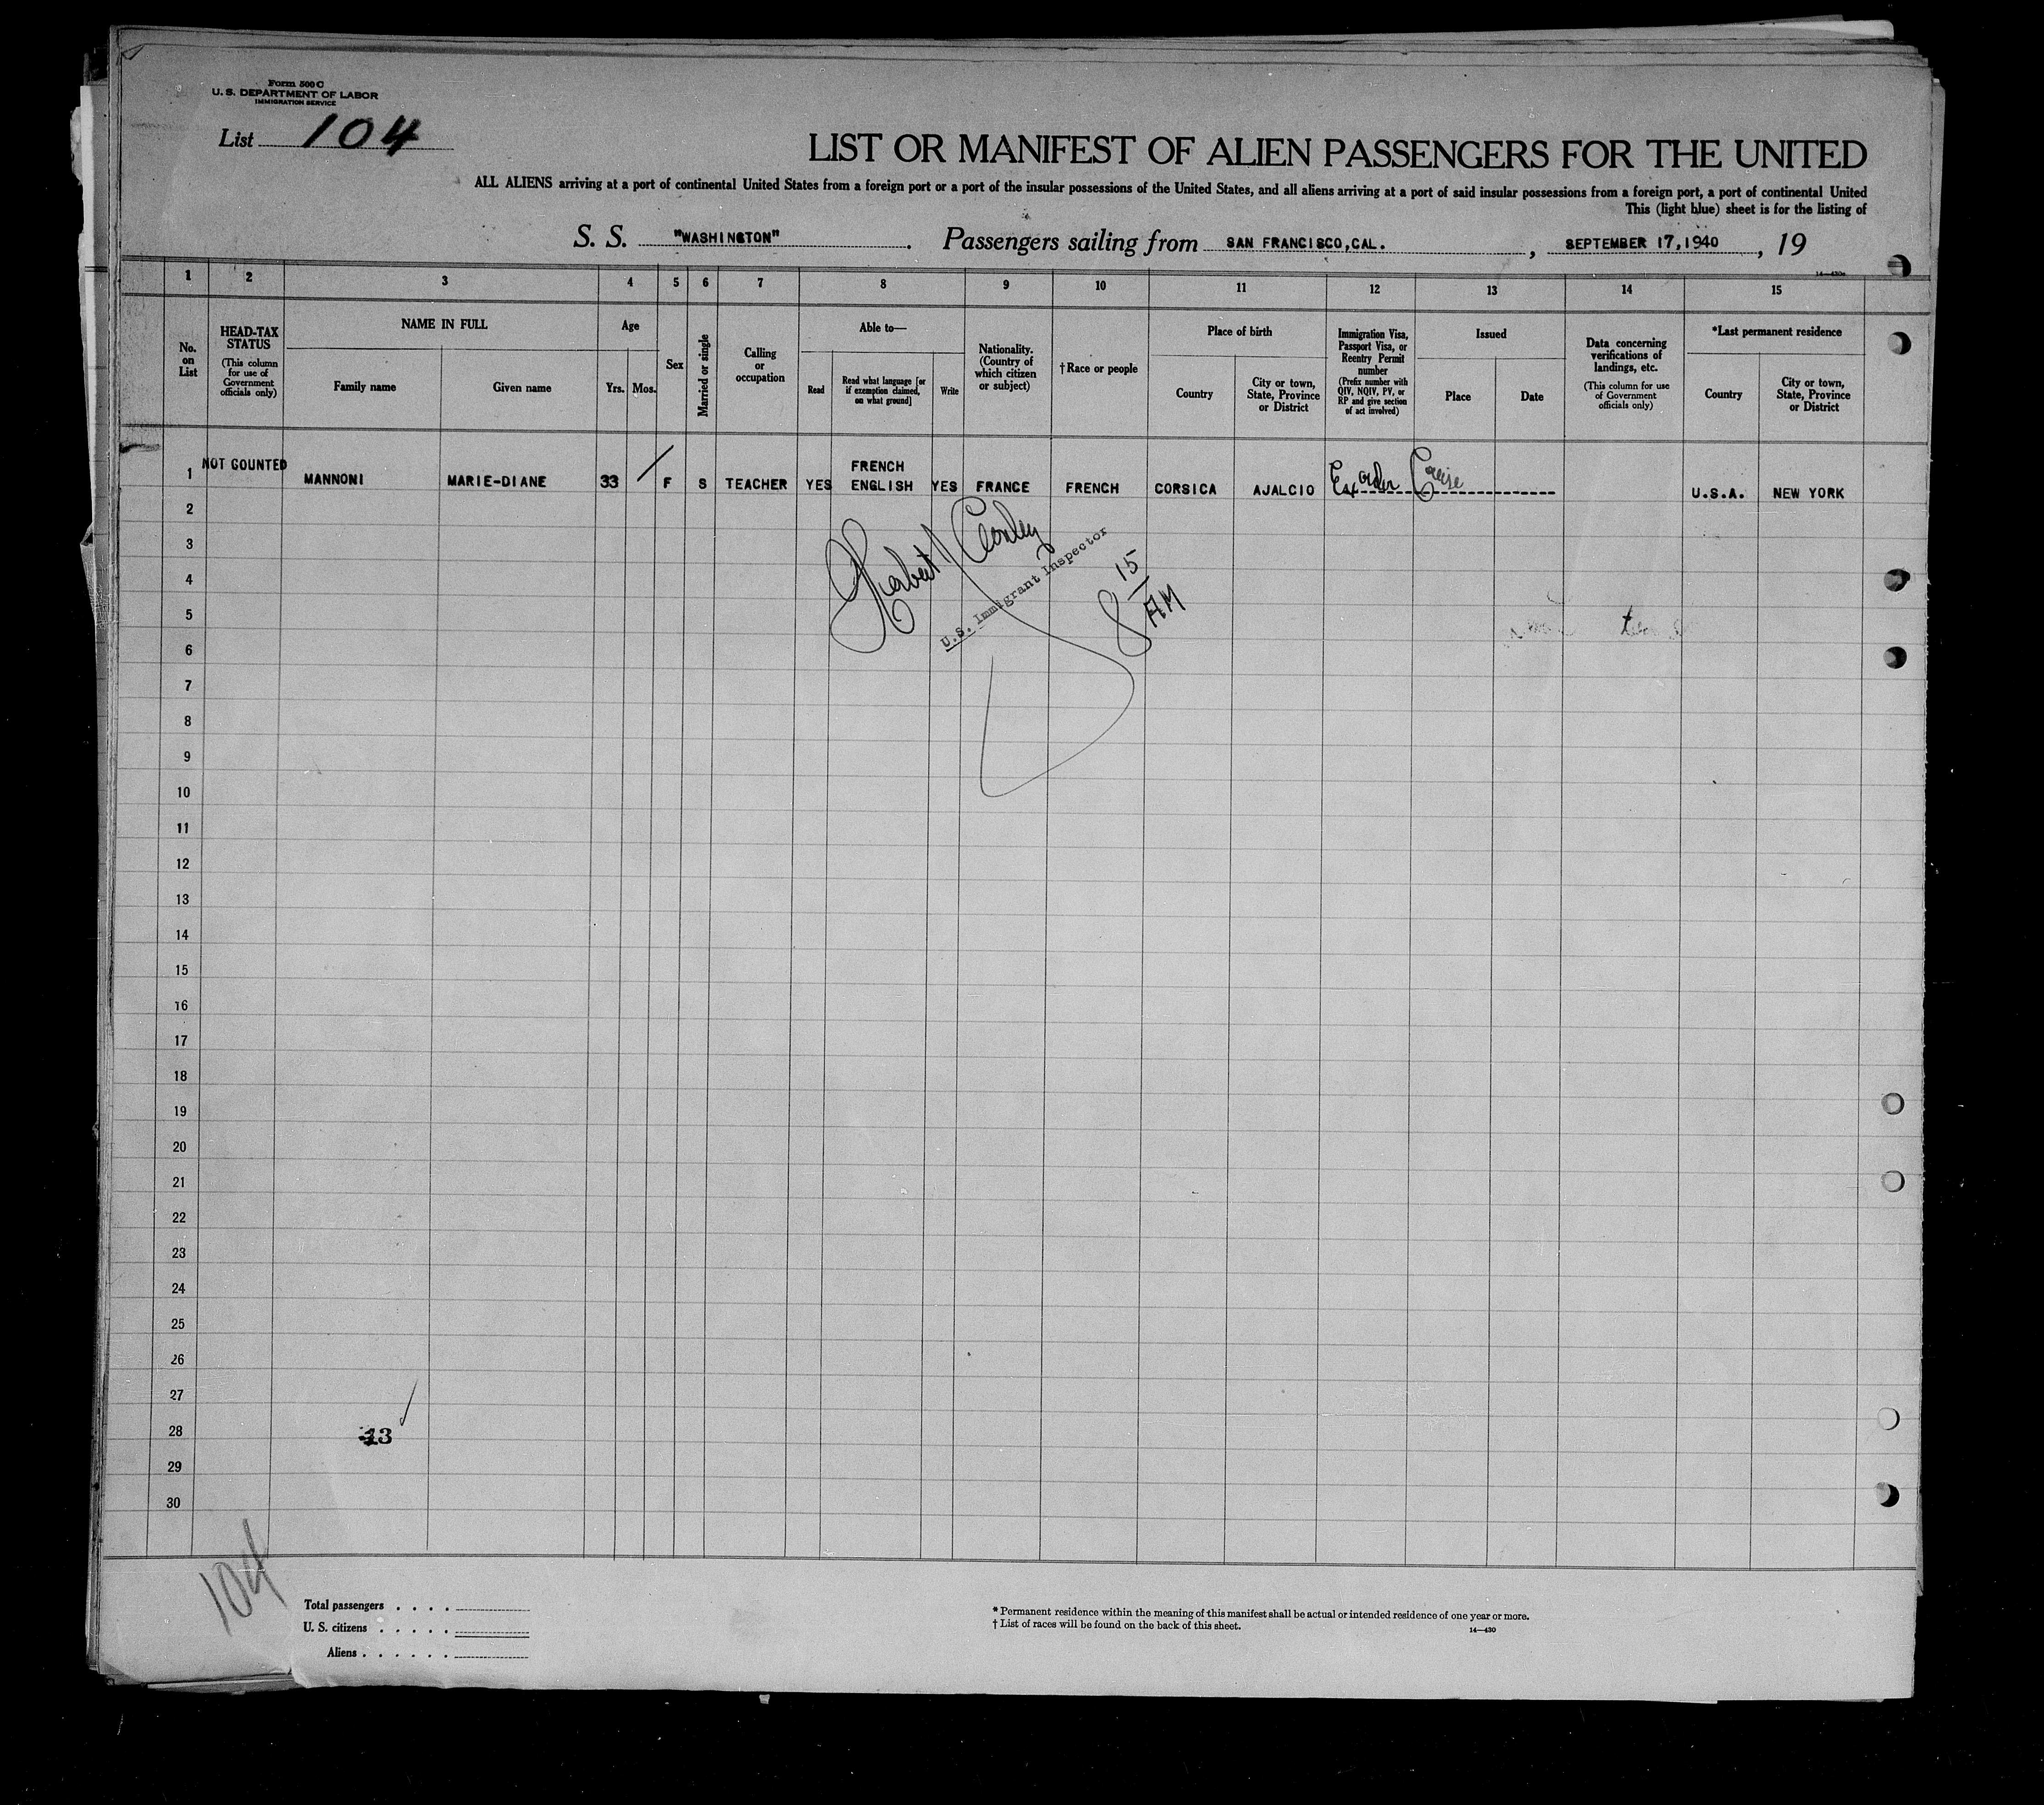 Form 500 C
U. S. DEPARTMENT OF LABOR
IMMIGRATION SERVICE
List 104
LIST OR MANIFEST OF ALIEN PASSENGERS FOR THE UNITED
ALL ALIENS arriving at a port of continental United States from a foreign port or a port of the insular possessions of the United States, and all aliens arriving at a port of said insular possessions from a foreign port, a port of continental United
This (light blue) sheet is for the listing of
S. S. "WASHINGTON" . Passengers sailing from SAN FRANCISCO, CAL. , SEPTEMBER 17, 1940 , 19
14—430a
1 2 3 4 5 6 7 8 9 10 11 12 13 14 15
No. on List
HEAD-TAX STATUS
(This column for use of Government officials only)
NAME IN FULL
Family name
Given name
Age
Yrs. Mos.
Sex
Married or single
Calling or occupation
Able to—
Read
Read what language [or if exemption claimed, on what ground]
Write
Nationality. (Country of which citizen or subject)
†Race or people
Place of birth
Country
City or town, State, Province or District
Immigration Visa, Passport Visa, or Reentry Permit number
(Prefix number with QIV, NQIV, PV, or RP and give section of act involved)
Issued
Place
Date
Data concerning verifications of landings, etc.
(This column for use of Government officials only)
*Last permanent residence
Country
City or town, State, Province or District
1 NOT COUNTED MANNONI MARIE-DIANE 33 F S TEACHER YES FRENCH ENGLISH YES FRANCE FRENCH CORSICA AJALCIO U.S.A. NEW YORK
2
3
4
5
6
7
8
9
10
11
12
13
14
15
16
17
18
19
20
21
22
23
24
25
26
27
28
29
30
U.S. Immigrant Inspector
8 15 AM
13
104
Total passengers . . . .
U. S. citizens . . . . .
Aliens . . . . . .
* Permanent residence within the meaning of this manifest shall be actual or intended residence of one year or more.
† List of races will be found on the back of this sheet.
14—430